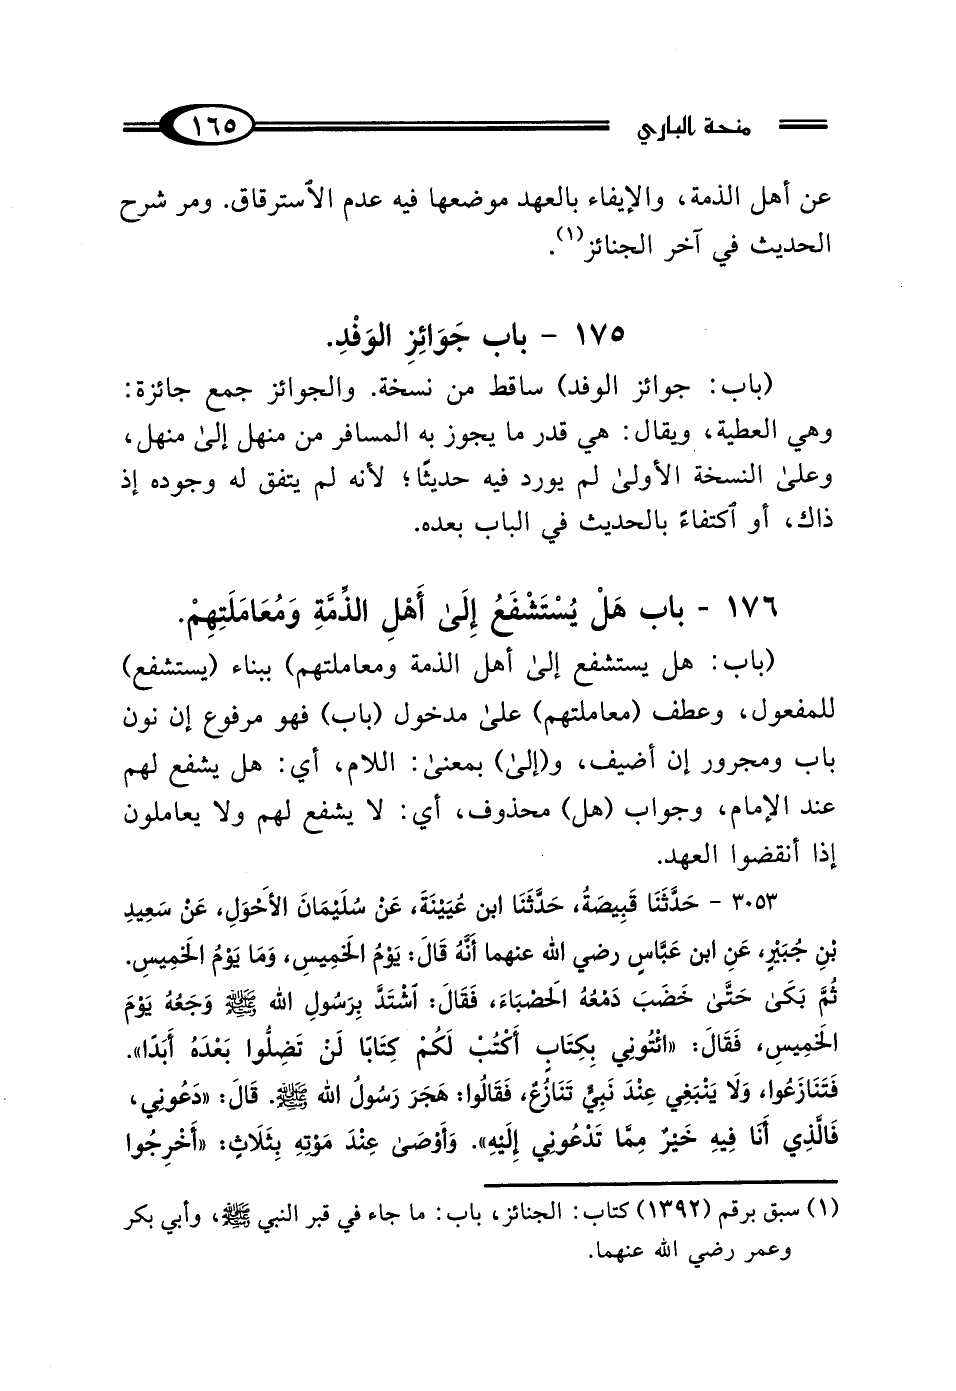 منحة الباري ١٦٥
عن أهل الذمة، والإيفاء بالعهد موضعها فيه عدم الاسترقاق. ومر شرح
الحديث في آخر الجنائز(١).
١٧٥ - باب جَوَائِزِ الوَفْدِ.
(باب: جوائز الوفد) ساقط من نسخة. والجوائز جمع جائزة:
وهي العطية، ويقال: هي قدر ما يجوز به المسافر من منهل إلىٰ منهل،
وعلىٰ النسخة الأولىٰ لم يورد فيه حديثًا؛ لأنه لم يتفق له وجوده إذ
ذاك، أو ٱكتفاءً بالحديث في الباب بعده.
١٧٦ - باب هَلْ يُسْتَشْفَعُ إِلَىٰ أَهْلِ الذِّمَّةِ وَمُعَامَلَتِهِمْ.
(باب: هل يستشفع إلىٰ أهل الذمة ومعاملتهم) ببناء (يستشفع)
للمفعول، وعطف (معاملتهم) علىٰ مدخول (باب) فهو مرفوع إن نون
باب ومجرور إن أضيف، و(إلىٰ) بمعنىٰ: اللام، أي: هل يشفع لهم
عند الإمام، وجواب (هل) محذوف، أي: لا يشفع لهم ولا يعاملون
إذا أنقضوا العهد.
٣٠٥٣ - حَدَّثَنَا قَبِيصَةُ، حَدَّثَنَا ابن عُيَيْنَةَ، عَنْ سُلَيْمَانَ الأَحْوَلِ، عَنْ سَعِيدِ
بْنِ جُبَيْرٍ، عَنِ ابن عَبَّاسٍ رضي الله عنهما أَنَّهُ قَالَ: يَوْمُ الخَمِيسِ، وَمَا يَوْمُ الخَمِيسِ.
ثُمَّ بَكَىٰ حَتَّىٰ خَضَبَ دَمْعُهُ الحَصْبَاءَ، فَقَالَ: ٱشْتَدَّ بِرَسُولِ الله ﷺ وَجَعُهُ يَوْمَ
الخَمِيسِ، فَقَالَ: «ائْتُونِي بِكِتَابٍ أَكْتُبْ لَكُمْ كِتَابًا لَنْ تَضِلُّوا بَعْدَهُ أَبَدًا».
فَتَنَازَعُوا، وَلَا يَنْبَغِي عِنْدَ نَبِيٍّ تَنَازُعٌ، فَقَالُوا: هَجَرَ رَسُولُ الله ﷺ. قَالَ: «دَعُونِي،
فَالَّذِي أَنَا فِيهِ خَيْرٌ مِمَّا تَدْعُونِي إِلَيْهِ». وَأَوْصَىٰ عِنْدَ مَوْتِهِ بِثَلَاثٍ: «أَخْرِجُوا
(١) سبق برقم (١٣٩٢) كتاب: الجنائز، باب: ما جاء في قبر النبي ﷺ، وأبي بكر
وعمر رضي الله عنهما.